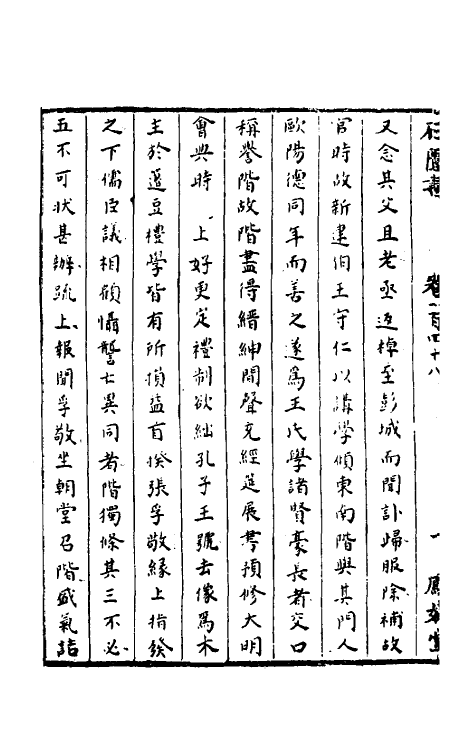 石匱書 卷一百四十八 一 鳳嬉堂
又念其父且老亟返棹至彭城而聞訃歸服除補故
官時故新建伯王守仁以講學傾東南階與其門人
歐陽德同年而善之遂爲王氏學諸賢豪長者交口
稱譽階故階盡得縉紳間聲充經筵展書預修大明
會典時　上好更定禮制欲絀孔子王號去像爲木
主於籩豆禮學皆有所損益首揆張孚敬緣上指發
之下儒臣議相顧懾讋亡異同者階獨條其三不必
五不可狀甚辦疏上報聞孚敬坐朝堂召階盛氣詰